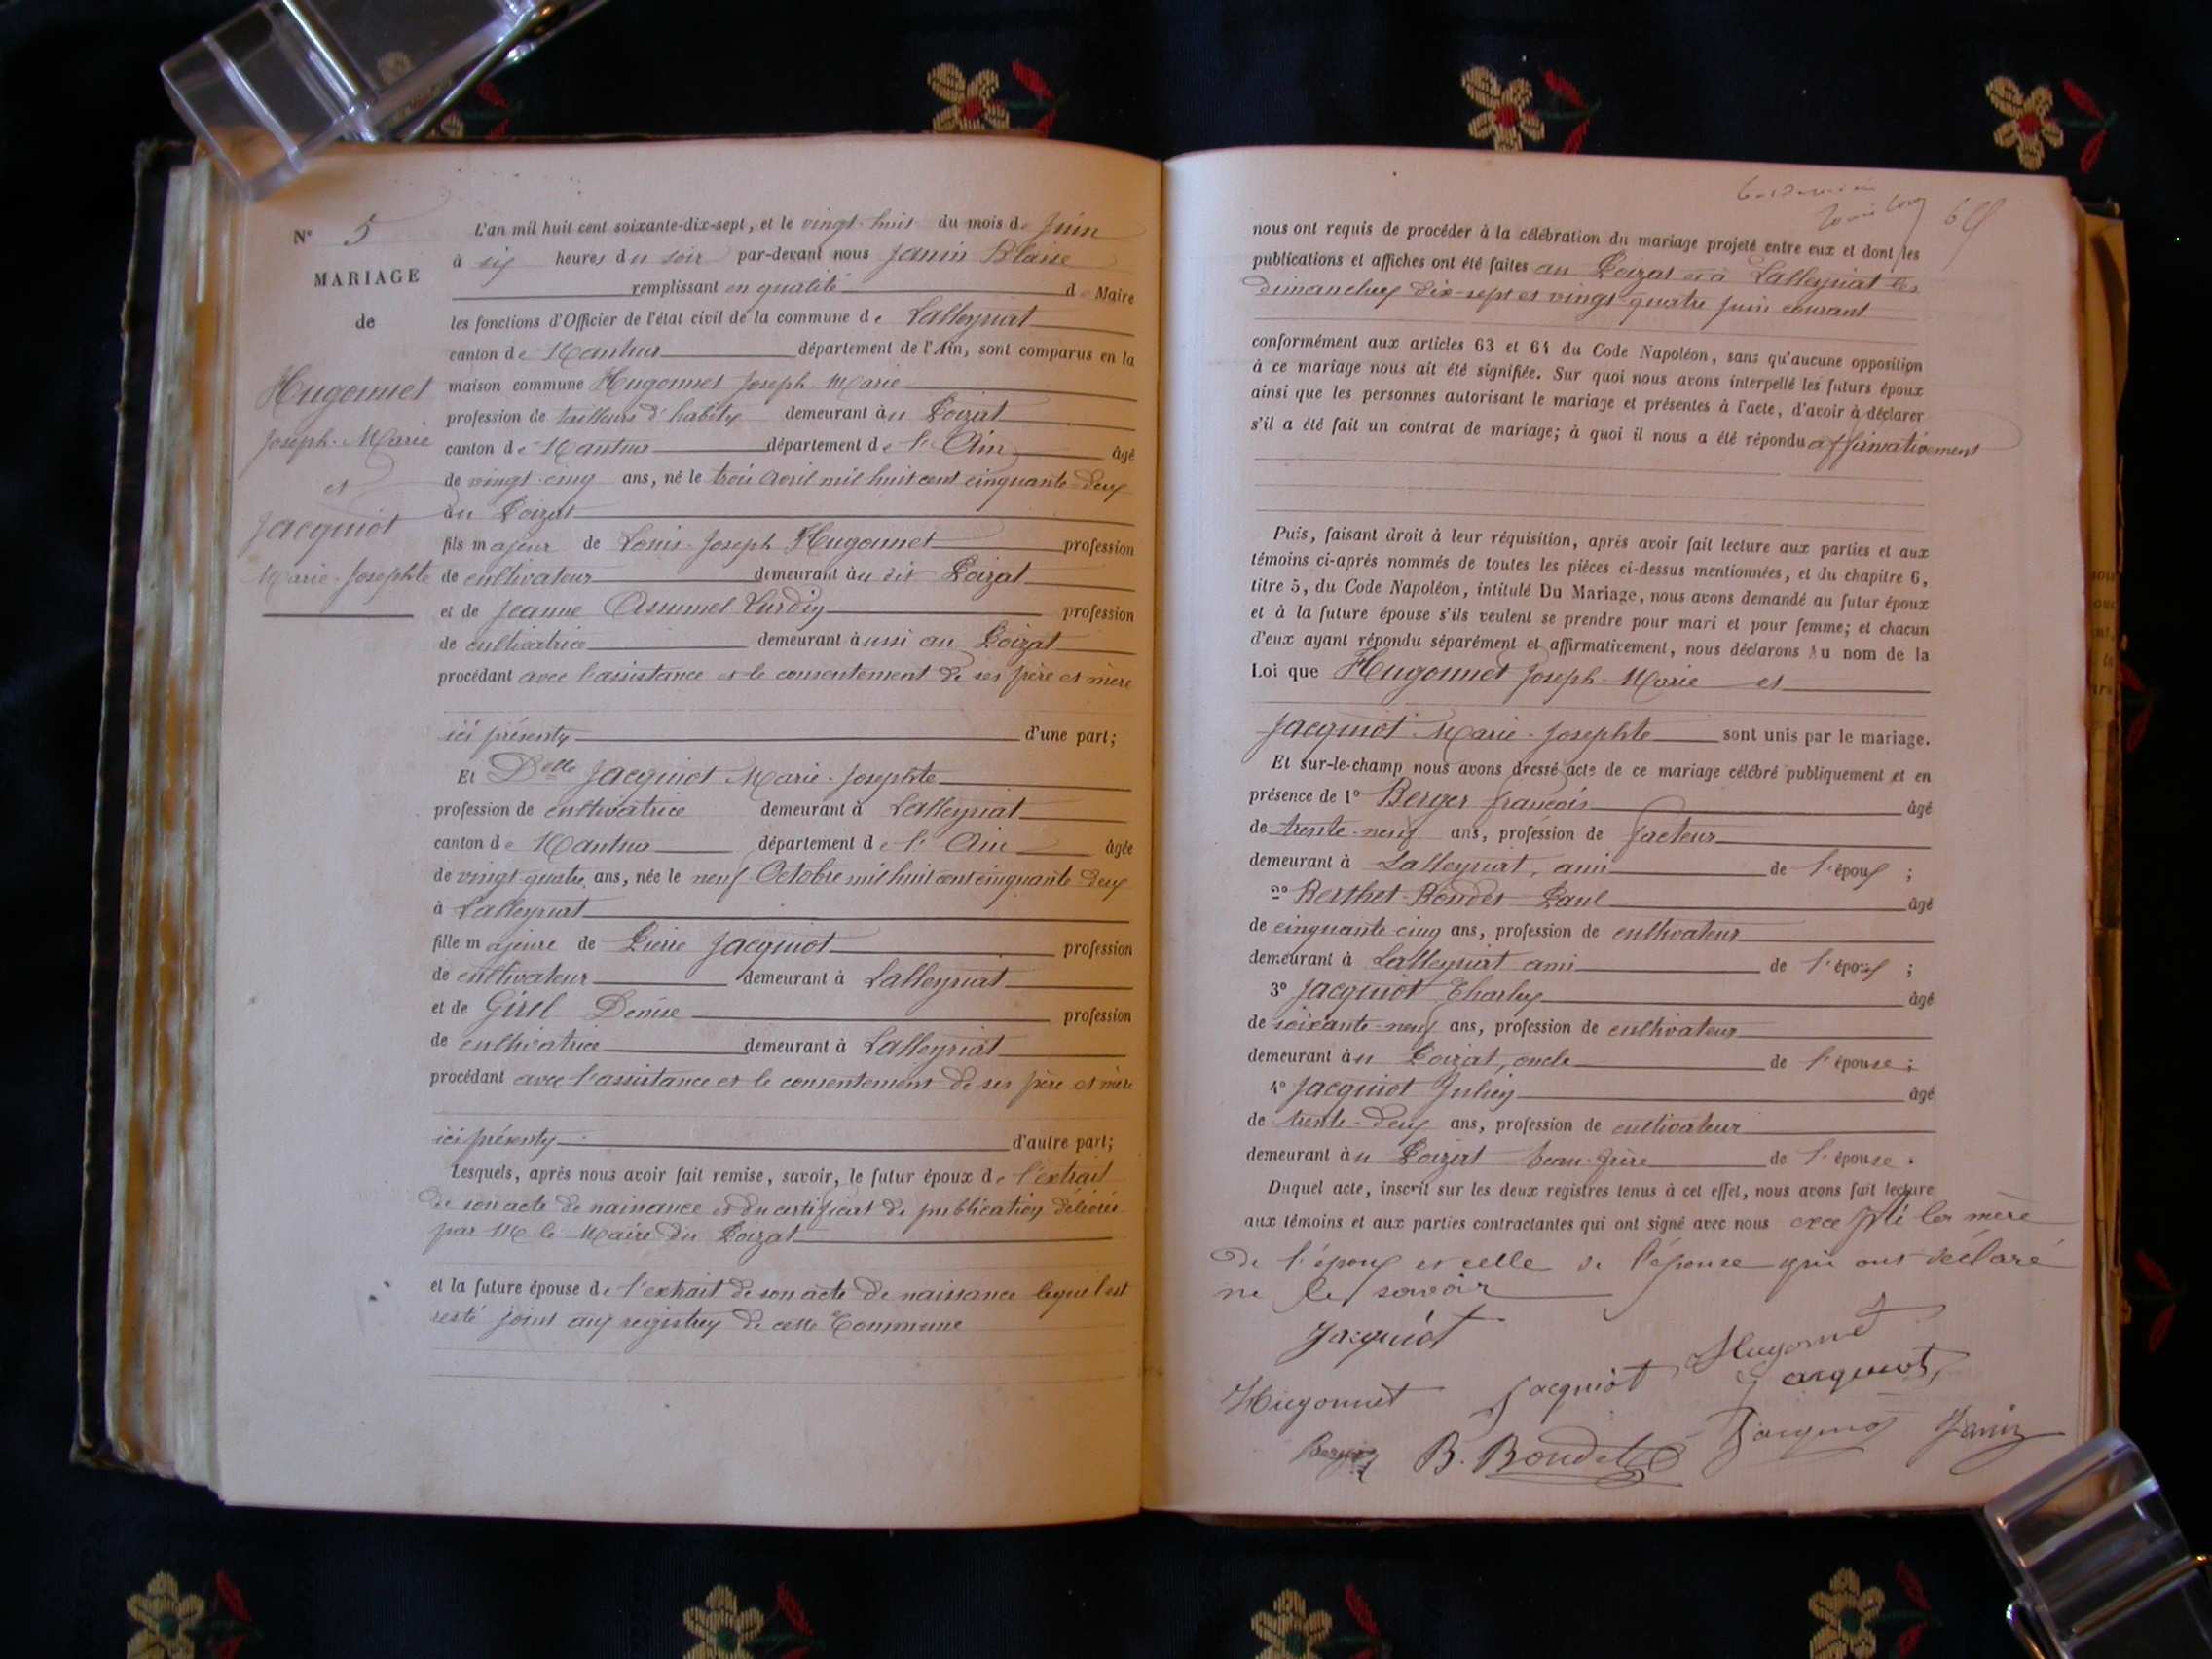 N° 5
MARIAGE
de
Hugonnet
Joseph-Marie
et
Jacquiot
Marie-Josephte
L'an mil huit cent soixante-dix-sept, et le vingt-huit du mois de Juin
à six heures du soir par-devant nous Janin Blaise
remplissant en qualité de Maire
les fonctions d'Officier de l'état civil de la commune de Lalleyriat
canton de Nantua département de l'Ain, sont comparus en la
maison commune Hugonnet Joseph-Marie
profession de tailleur d'habits demeurant au Poizat
canton de Nantua département de l'Ain âgé
de vingt-cinq ans, né le trois avril mil huit cent cinquante-deux
au Poizat
fils majeur de Louis-Joseph Hugonnet profession
de cultivateur demeurant au dit Poizat
et de Jeanne Assumel Lurdin profession
de cultivatrice demeurant aussi au Poizat
procédant avec l'assistance et le consentement de ses père et mère
ici présents d'une part;
Et Delle Jacquiot Marie-Josephte
profession de cultivatrice demeurant à Lalleyriat
canton de Nantua département de l'Ain âgée
de vingt quatre ans, née le neuf Octobre mil huit cent cinquante-deux
à Lalleyriat
fille majeure de Pierre Jacquiot profession
de cultivateur demeurant à Lalleyriat
et de Girel Denise profession
de cultivatrice demeurant à Lalleyriat
procédant avec l'assistance et le consentement de ses père et mère
ici présents d'autre part;
Lesquels, après nous avoir fait remise, savoir, le futur époux de l'extrait
de son acte de naissance et du certificat de publication délivré
par M le Maire du Poizat
et la future épouse de l'extrait de son acte de naissance lequel est
resté joint aux registres de cette Commune
nous ont requis de procéder à la célébration du mariage projeté entre eux et dont les
publications et affiches ont été faites au Poizat et à Lalleyriat les
dimanches dix-sept et vingt-quatre juin courant
conformément aux articles 63 et 64 du Code Napoléon, sans qu'aucune opposition
à ce mariage nous ait été signifiée. Sur quoi nous avons interpellé les futurs époux
ainsi que les personnes autorisant le mariage et présentes à l'acte, d'avoir à déclarer
s'il a été fait un contrat de mariage; à quoi il nous a été répondu affirmativement
Puis, faisant droit à leur réquisition, après avoir fait lecture aux parties et aux
témoins ci-après nommés de toutes les pièces ci-dessus mentionnées, et du chapitre 6,
titre 5, du Code Napoléon, intitulé Du Mariage, nous avons demandé au futur époux
et à la future épouse s'ils veulent se prendre pour mari et pour femme; et chacun
d'eux ayant répondu séparément et affirmativement, nous déclarons Au nom de la
Loi que Hugonnet Joseph-Marie et
Jacquiot Marie-Josephte sont unis par le mariage.
Et sur-le-champ nous avons dressé acte de ce mariage célébré publiquement et en
présence de 1° Berger françois âgé
de trente-neuf ans, profession de facteur
demeurant à Lalleyriat, ami de l'époux ;
2° Berthet-Bondet Paul âgé
de cinquante-cinq ans, profession de cultivateur
demeurant à Lalleyriat ami de l'époux ;
3° Jacquiot Charles âgé
de soixante-neuf ans, profession de cultivateur
demeurant au Poizat, oncle de l'épouse ;
4° Jacquiot Julien âgé
de trente-deux ans, profession de cultivateur
demeurant au Poizat beau-frère de l'épouse.
Duquel acte, inscrit sur les deux registres tenus à cet effet, nous avons fait lecture
aux témoins et aux parties contractantes qui ont signé avec nous excepté la mère
de l'époux et celle de l'épouse qui ont déclaré
ne le savoir
Jacquiot
Hugonnet
Hugonnet Jacquiot Jacquiot
Berger B. Bondet Jacquiot Janin